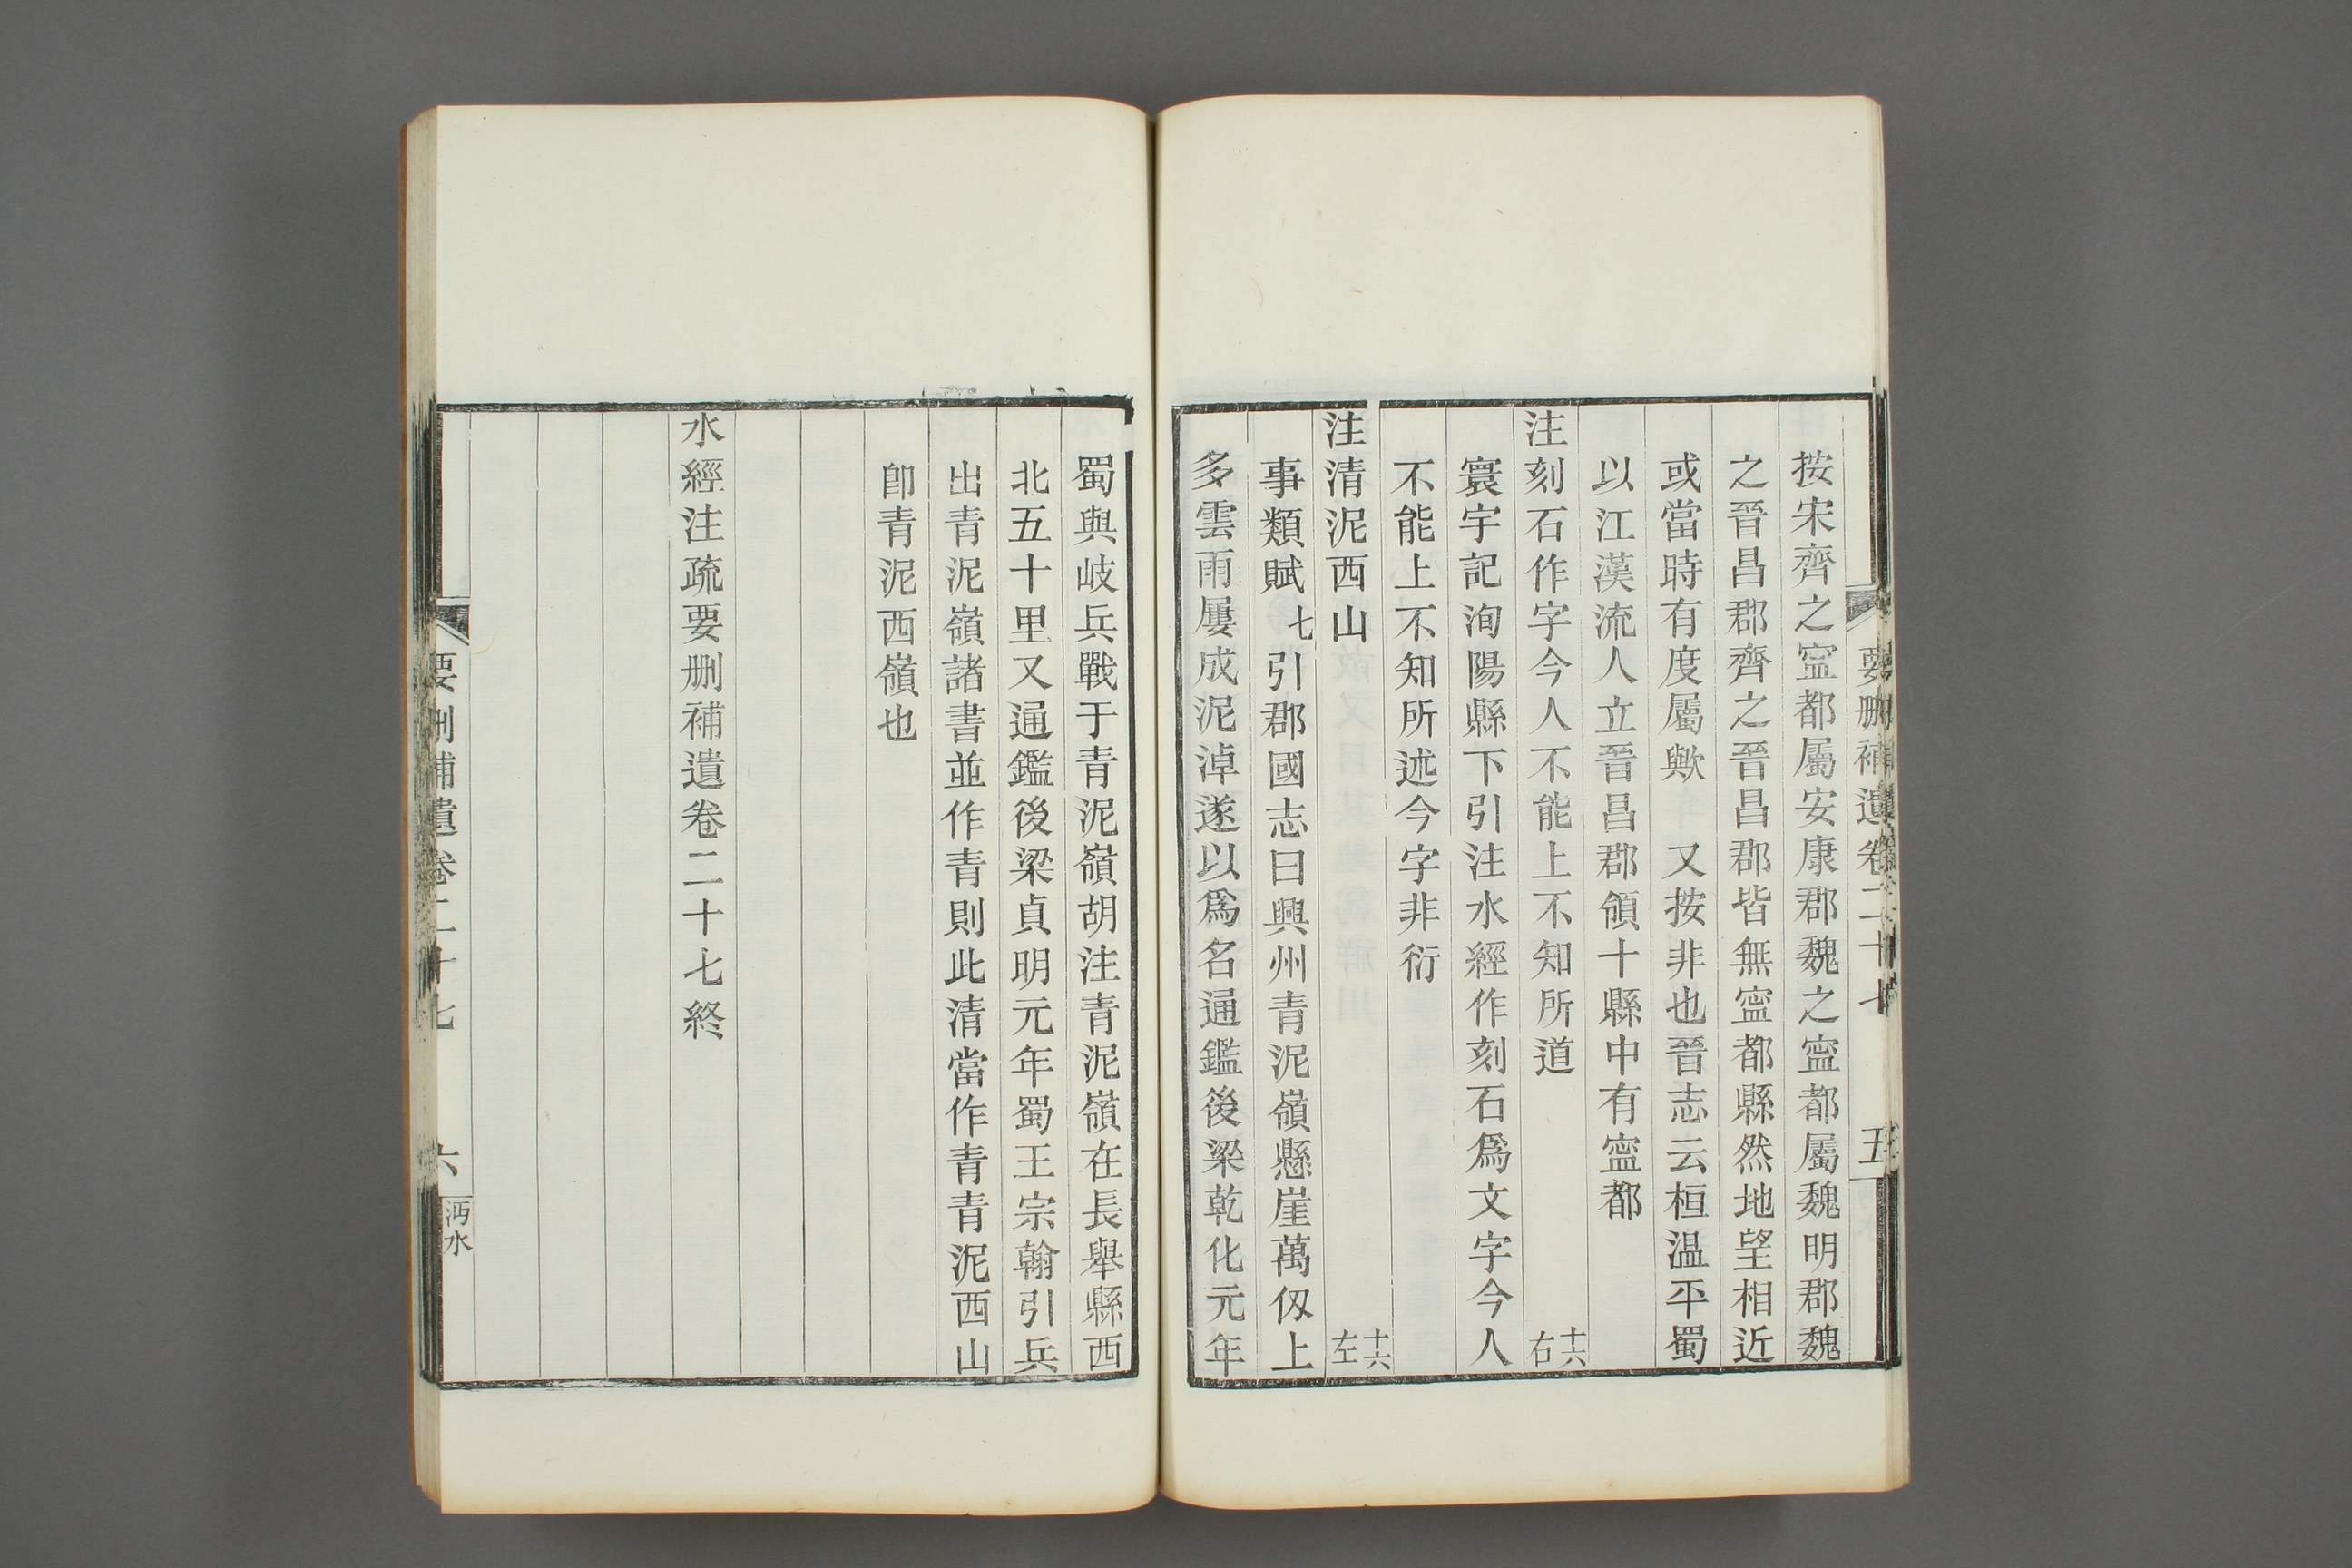 要刪補遺卷二十七 五
按宋齊之寍都屬安康郡魏之寍都屬魏明郡魏
之晉昌郡齊之晉昌郡皆無寍都縣然地望相近
或當時有度屬歟 又按非也晉志云桓温平蜀
以江漢流人立晉昌郡領十縣中有寍都
注刻石作字今人不能上不知所道 十六右
寰宇記洵陽縣下引注水經作刻石爲文字今人
不能上不知所述今字非衍
注清泥西山 十六左
事類賦七引郡國志曰興州青泥嶺懸崖萬仭上
多雲雨屢成泥淖遂以爲名通鑑後梁乾化元年
蜀與岐兵戰于青泥嶺胡注青泥嶺在長舉縣西
北五十里又通鑑後梁貞明元年蜀王宗翰引兵
出青泥嶺諸書並作青則此清當作青青泥西山
卽青泥西嶺也
水經注疏要刪補遺卷二十七終
要刪補遺卷二十七 六 沔水